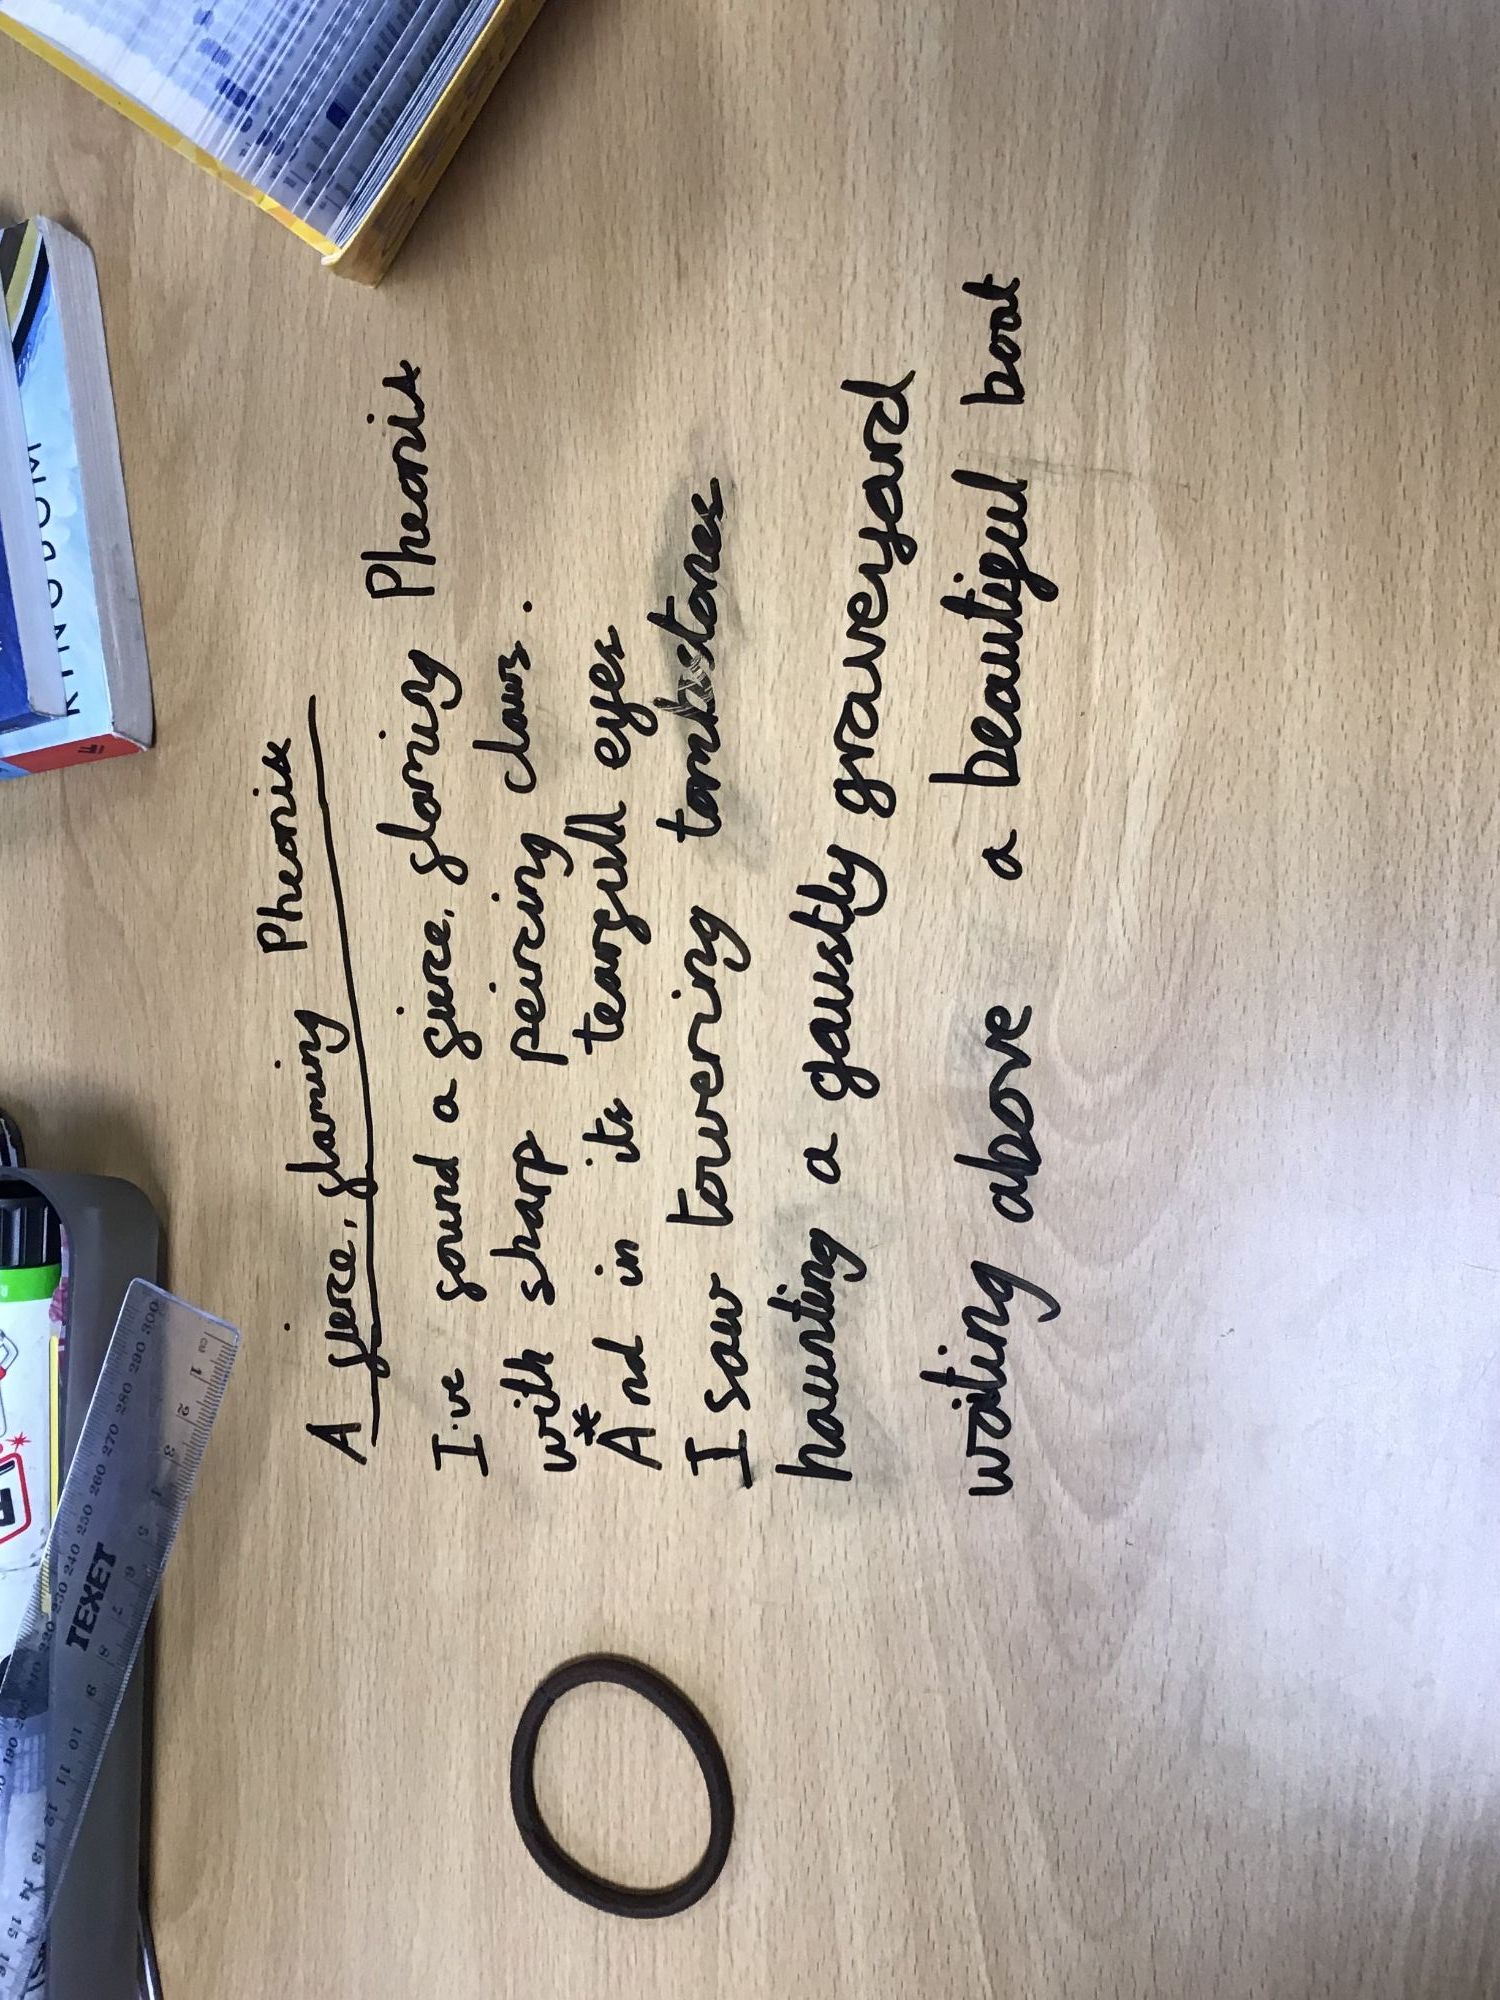 A fierce, flaming Pheonix
I've found a fierce, flaming Pheonix
with sharp peircing claws.
*And in its tearfull eyes
I saw towering tombstones
haunting a gaustly graveyard
waiting above a beautiful boat
KINGDOM
TEXET